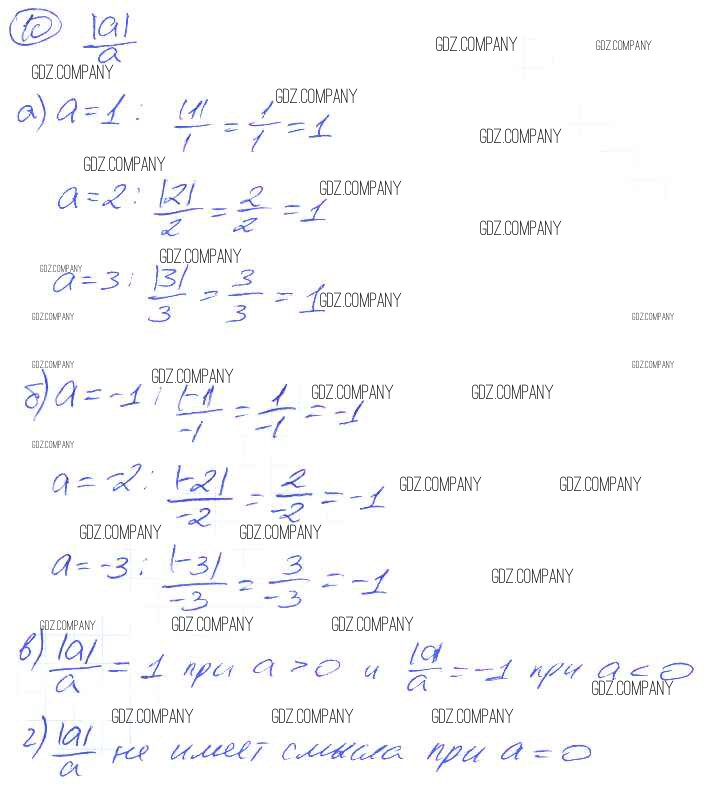 10 |a|/a
GDZ.COMPANY GDZ.COMPANY
GDZ.COMPANY
GDZ.COMPANY
а) a = 1 : |1|/1 = 1/1 = 1
GDZ.COMPANY
GDZ.COMPANY
GDZ.COMPANY
a = 2 : |2|/2 = 2/2 = 1
GDZ.COMPANY
GDZ.COMPANY
GDZ.COMPANY
a = 3 : |3|/3 = 3/3 = 1
GDZ.COMPANY
GDZ.COMPANY GDZ.COMPANY
GDZ.COMPANY GDZ.COMPANY
GDZ.COMPANY
б) a = -1 : |-1|/-1 = 1/-1 = -1
GDZ.COMPANY GDZ.COMPANY
GDZ.COMPANY
a = -2 : |-2|/-2 = 2/-2 = -1
GDZ.COMPANY GDZ.COMPANY
GDZ.COMPANY GDZ.COMPANY
a = -3 : |-3|/-3 = 3/-3 = -1
GDZ.COMPANY
GDZ.COMPANY GDZ.COMPANY GDZ.COMPANY
в) |a|/a = 1 при a > 0 и |a|/a = -1 при a < 0
GDZ.COMPANY
GDZ.COMPANY GDZ.COMPANY GDZ.COMPANY
г) |a|/a не имеет смысла при a = 0